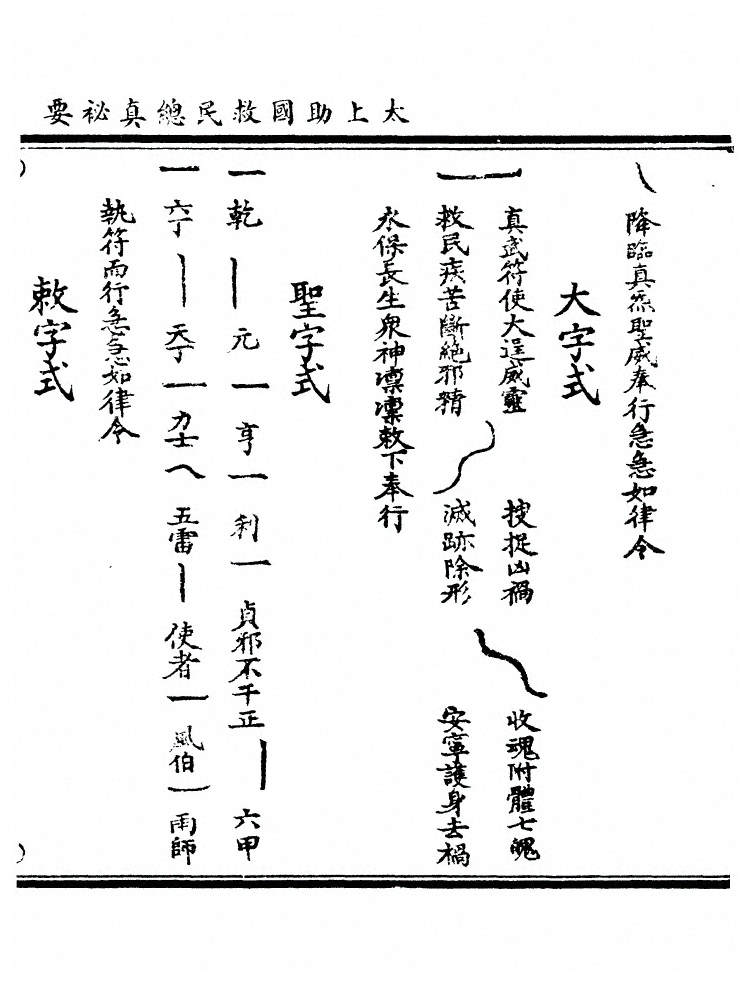 太上助國救民總真祕要
降臨真炁聖威奉行急急如律令
大字式
真武符使大逞威靈 搜捉凶禍 收魂附體七魄
救民疾苦斷絕邪精 滅跡除形 安寧護身去禍
永保長生衆神凛凛敕下奉行
聖字式
乾 元 亨 利 貞邪不干正 六甲
六丁 天丁 力士 五雷 使者 風伯 雨師
執符而行急急如律令
敕字式